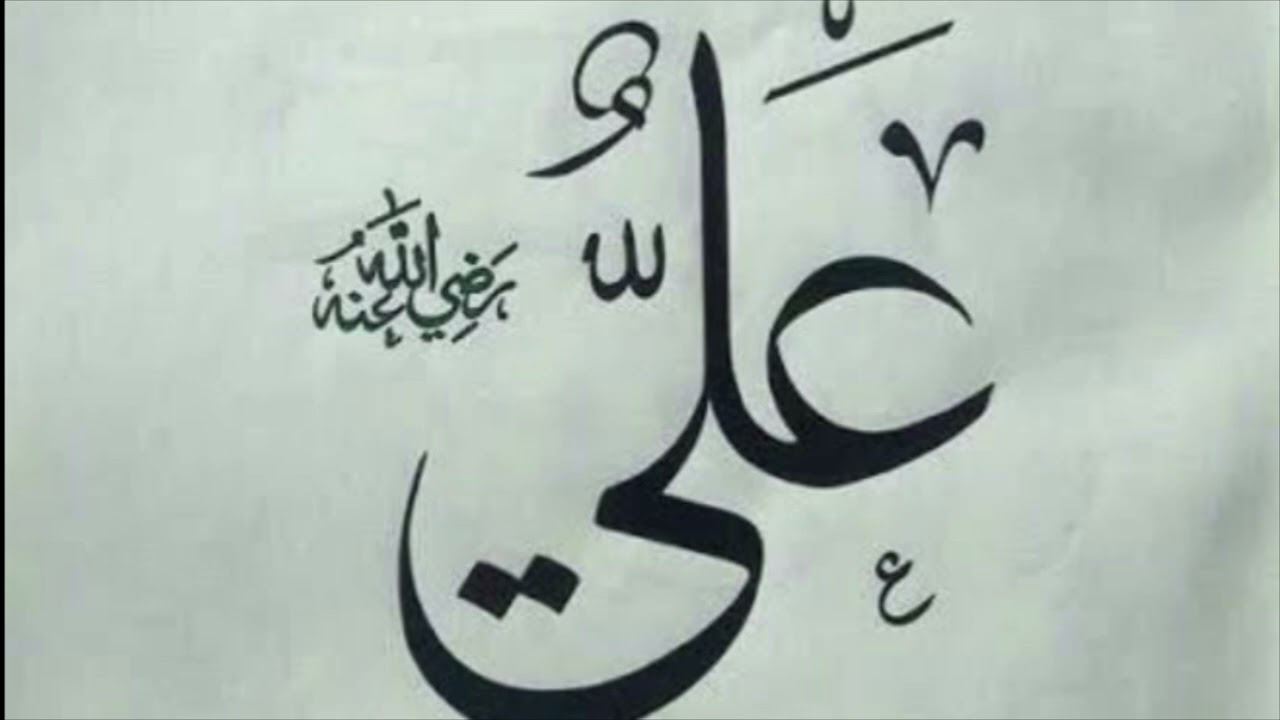 عَلِيٌّ
رَضِيَ اللّٰهُ عَنْهُ